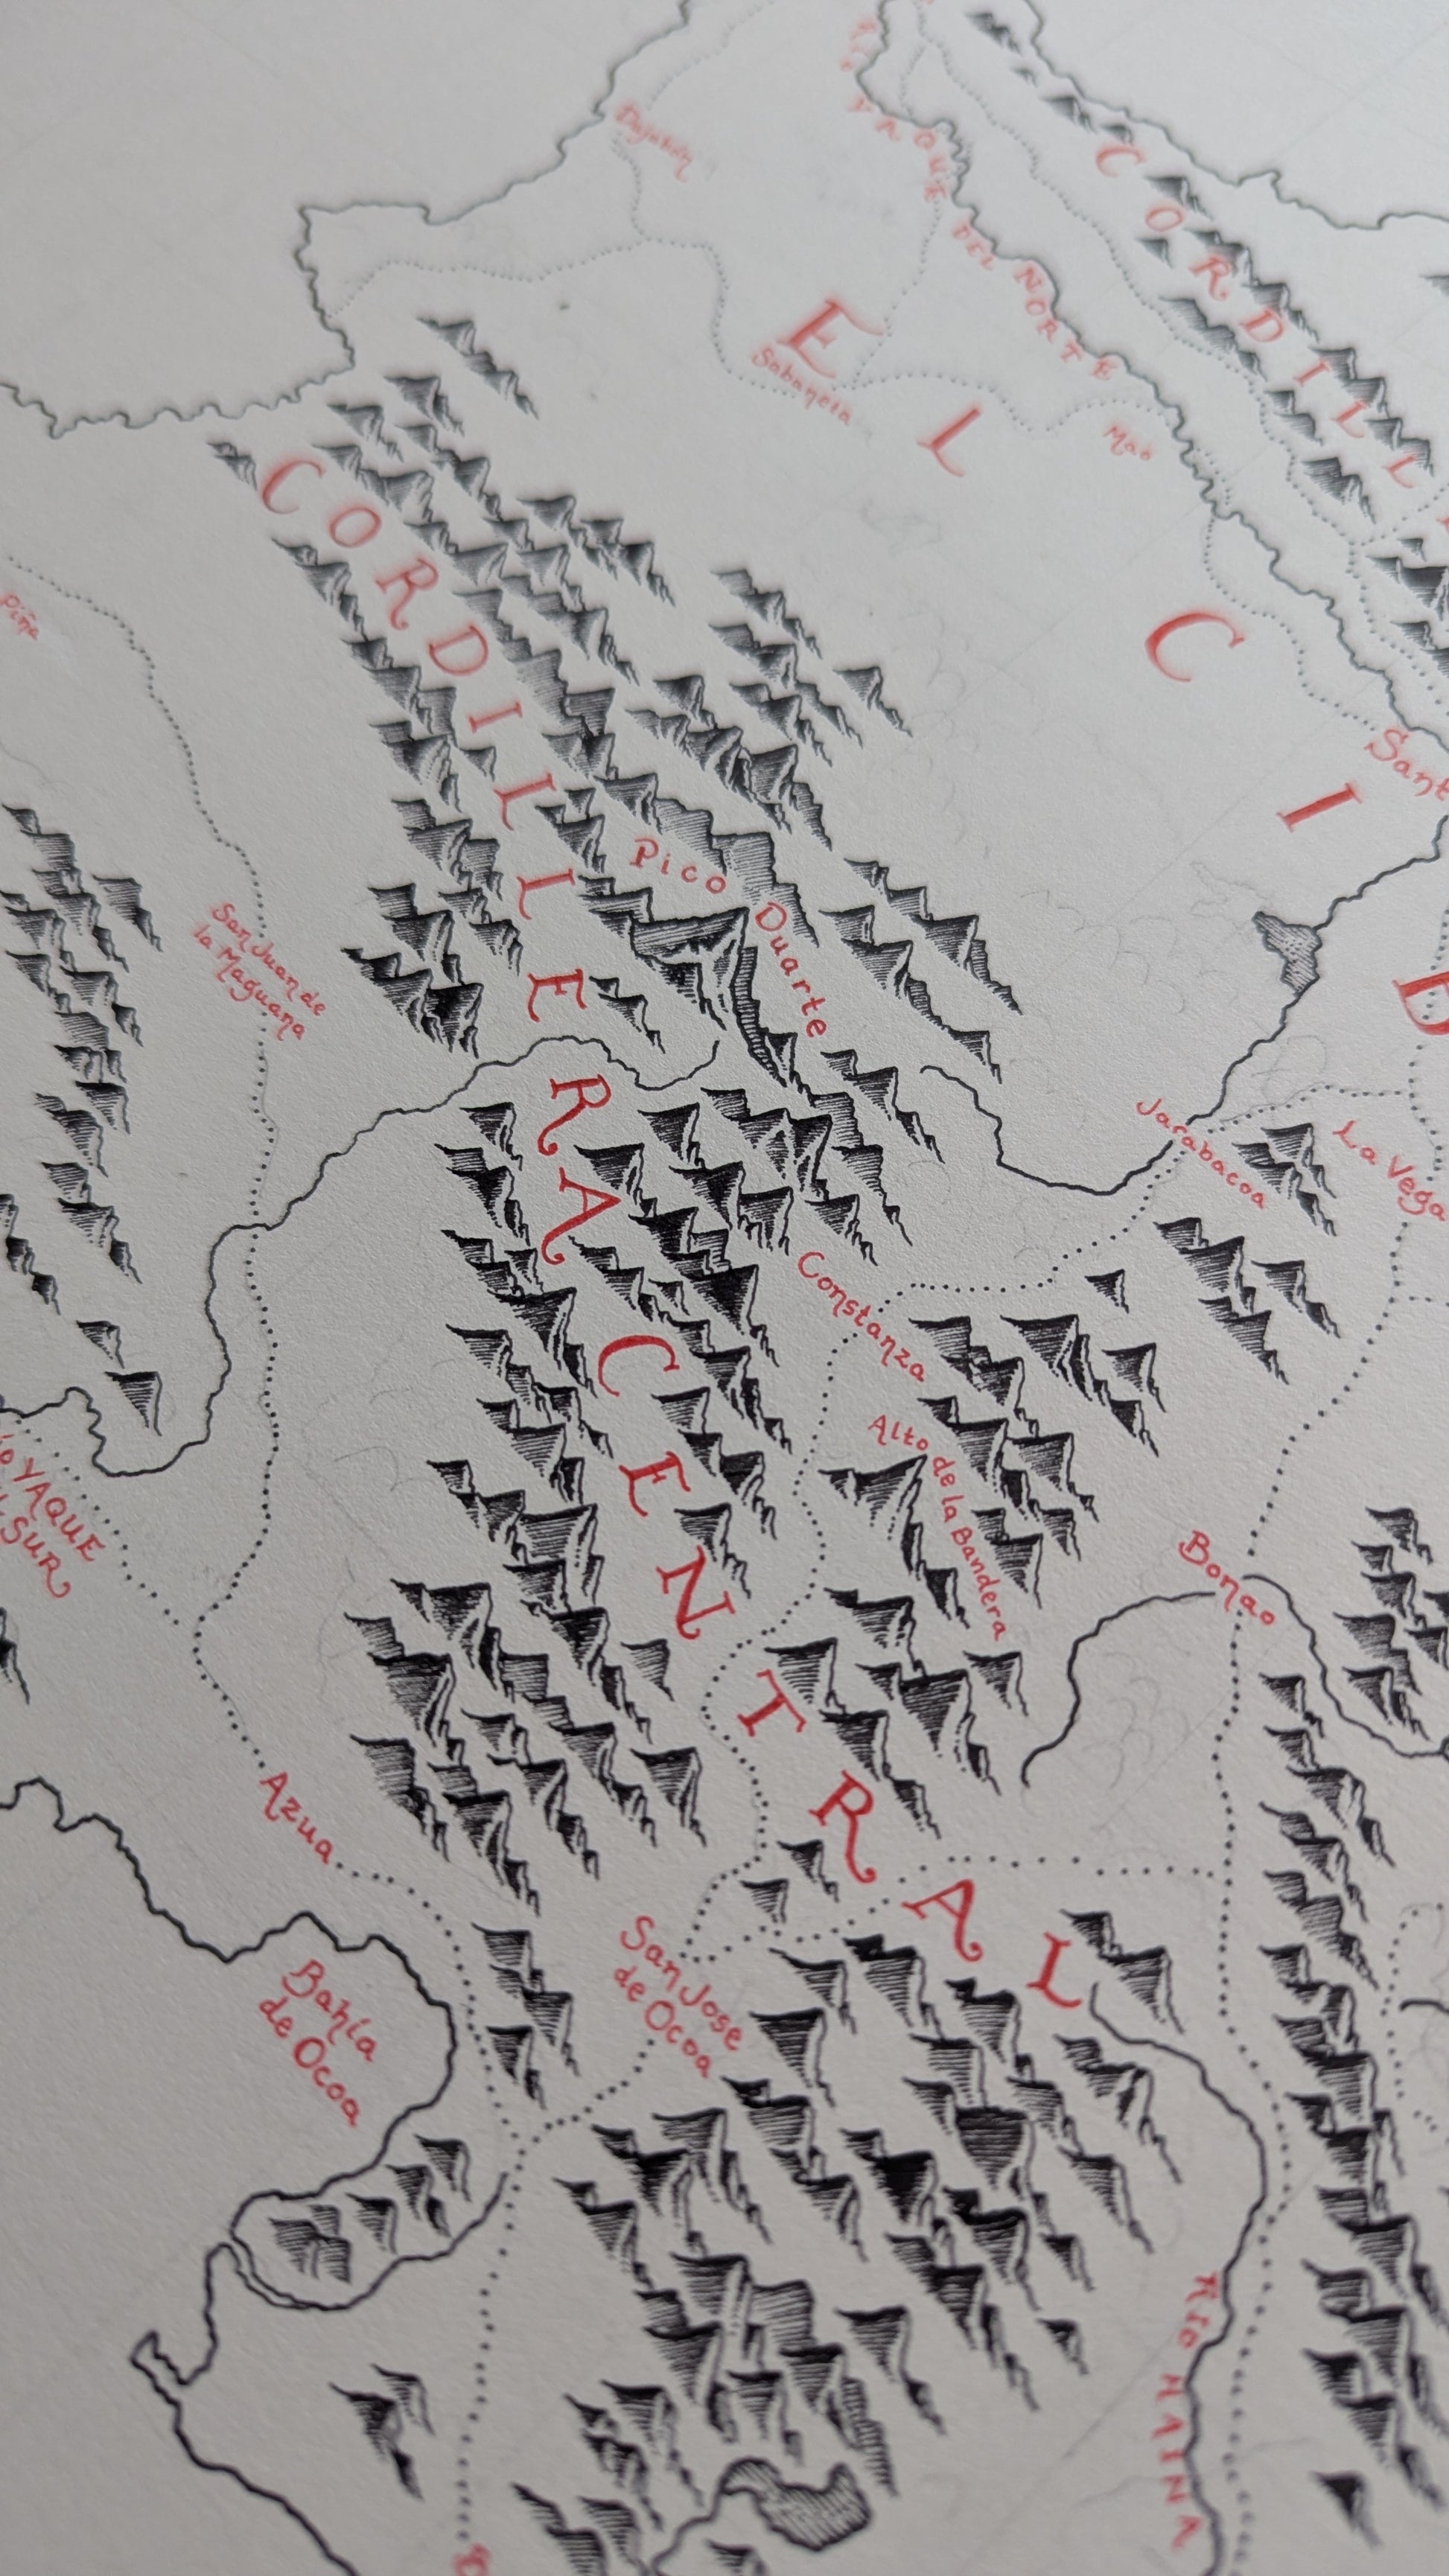 Dajabón
YAQUE DEL NORTE
CORDILL
EL CI
Sabaneta
Mao
CORDILLERA CENTRAL
Piña
Sant
Pico Duarte
San Juan de
la Maguana
Jarabacoa
La Vega
Constanza
Alto de la Bandera
YAQUE
SUR
Bonao
Azua
San Jose
de Ocoa
Bahía
de Ocoa
Río HAINA